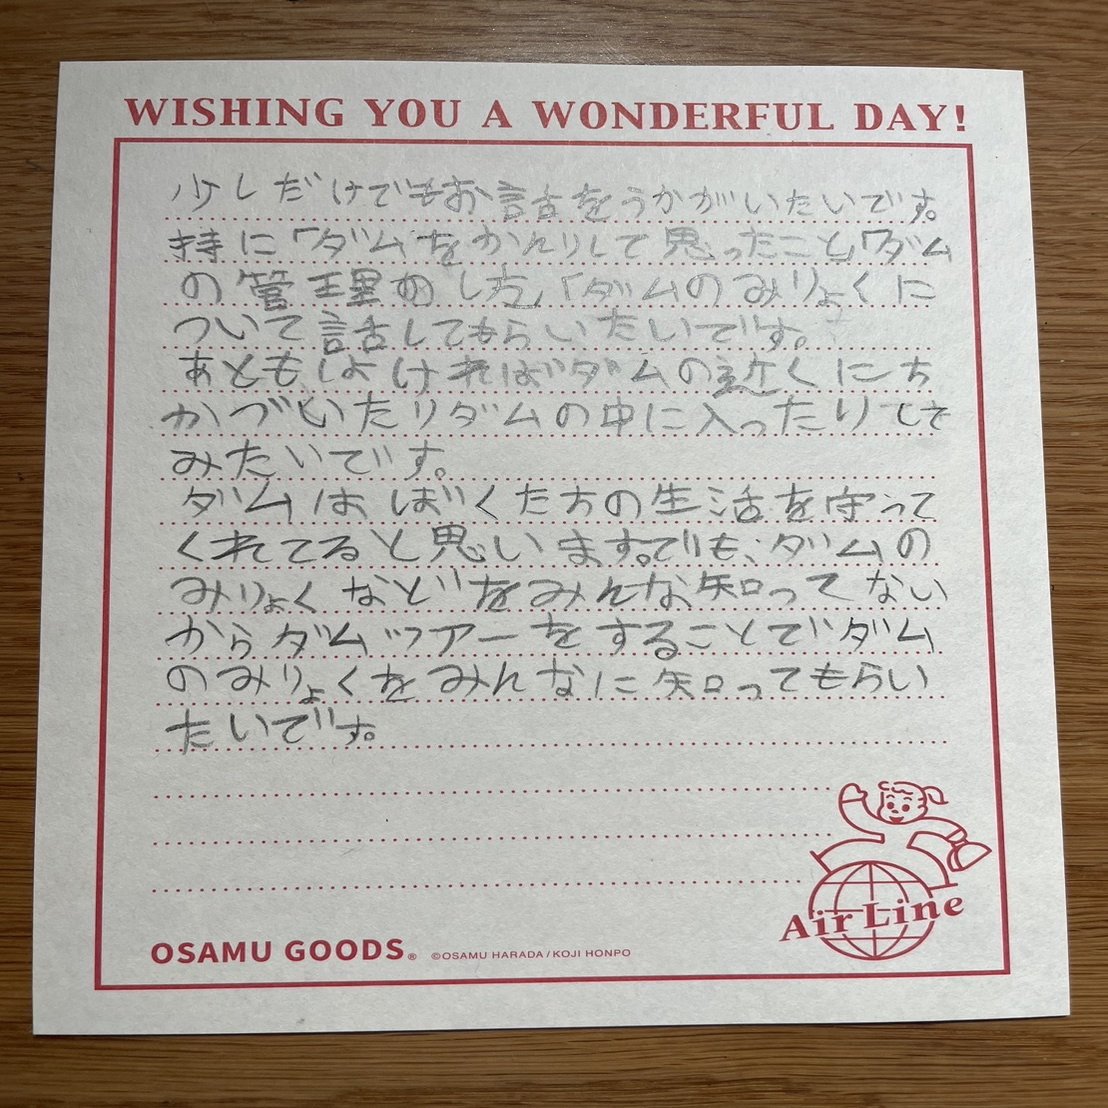 WISHING YOU A WONDERFUL DAY!
少しだけでもお話をうかがいたいです。
持に「ダム」をかんりして思ったこと」「ダム
の管理の し方」「ダムのみりょくに
ついて話してもらいたいです。
あともしよければダムの近くにち
かづいたりダムの中に入ったりしで
みたいです。
ダムはぼくたちの生活を守って
くれてると思います。でも、ダムの
みりょくなどをみんな知ってない
からダムツアーをすることでダム
のみりょくをみんなに知ってもらい
たいです。
Air Line
OSAMU GOODS® ©OSAMU HARADA / KOJI HONPO